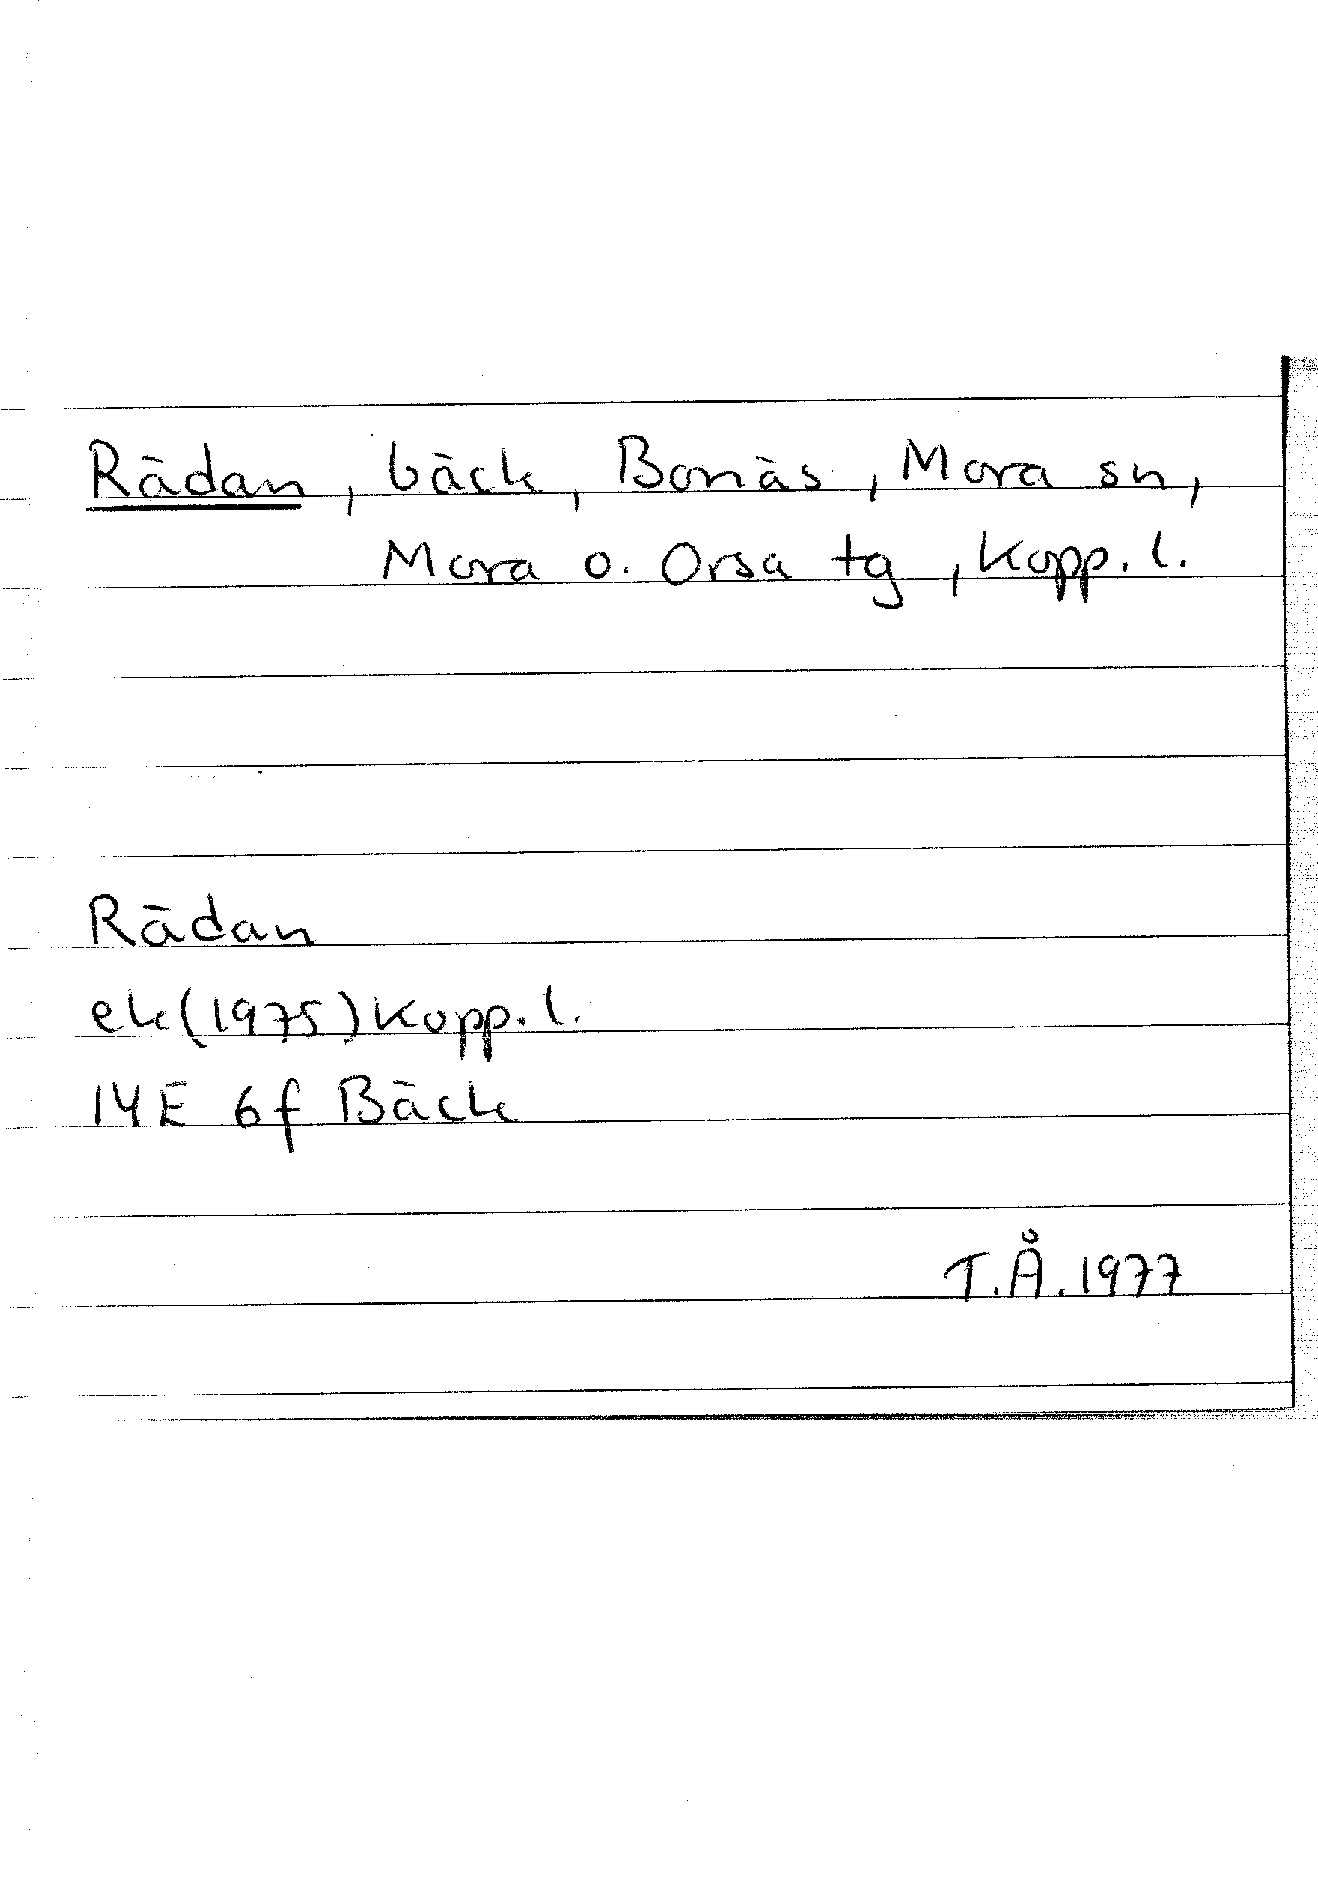 Rädan, bäck, Bonäs, Mora sn,
Mora o. Orsa tg, Kopp. l.
Rädan
ek(1975) Kopp. l.
14E 6f Bäck
T.Å. 1977